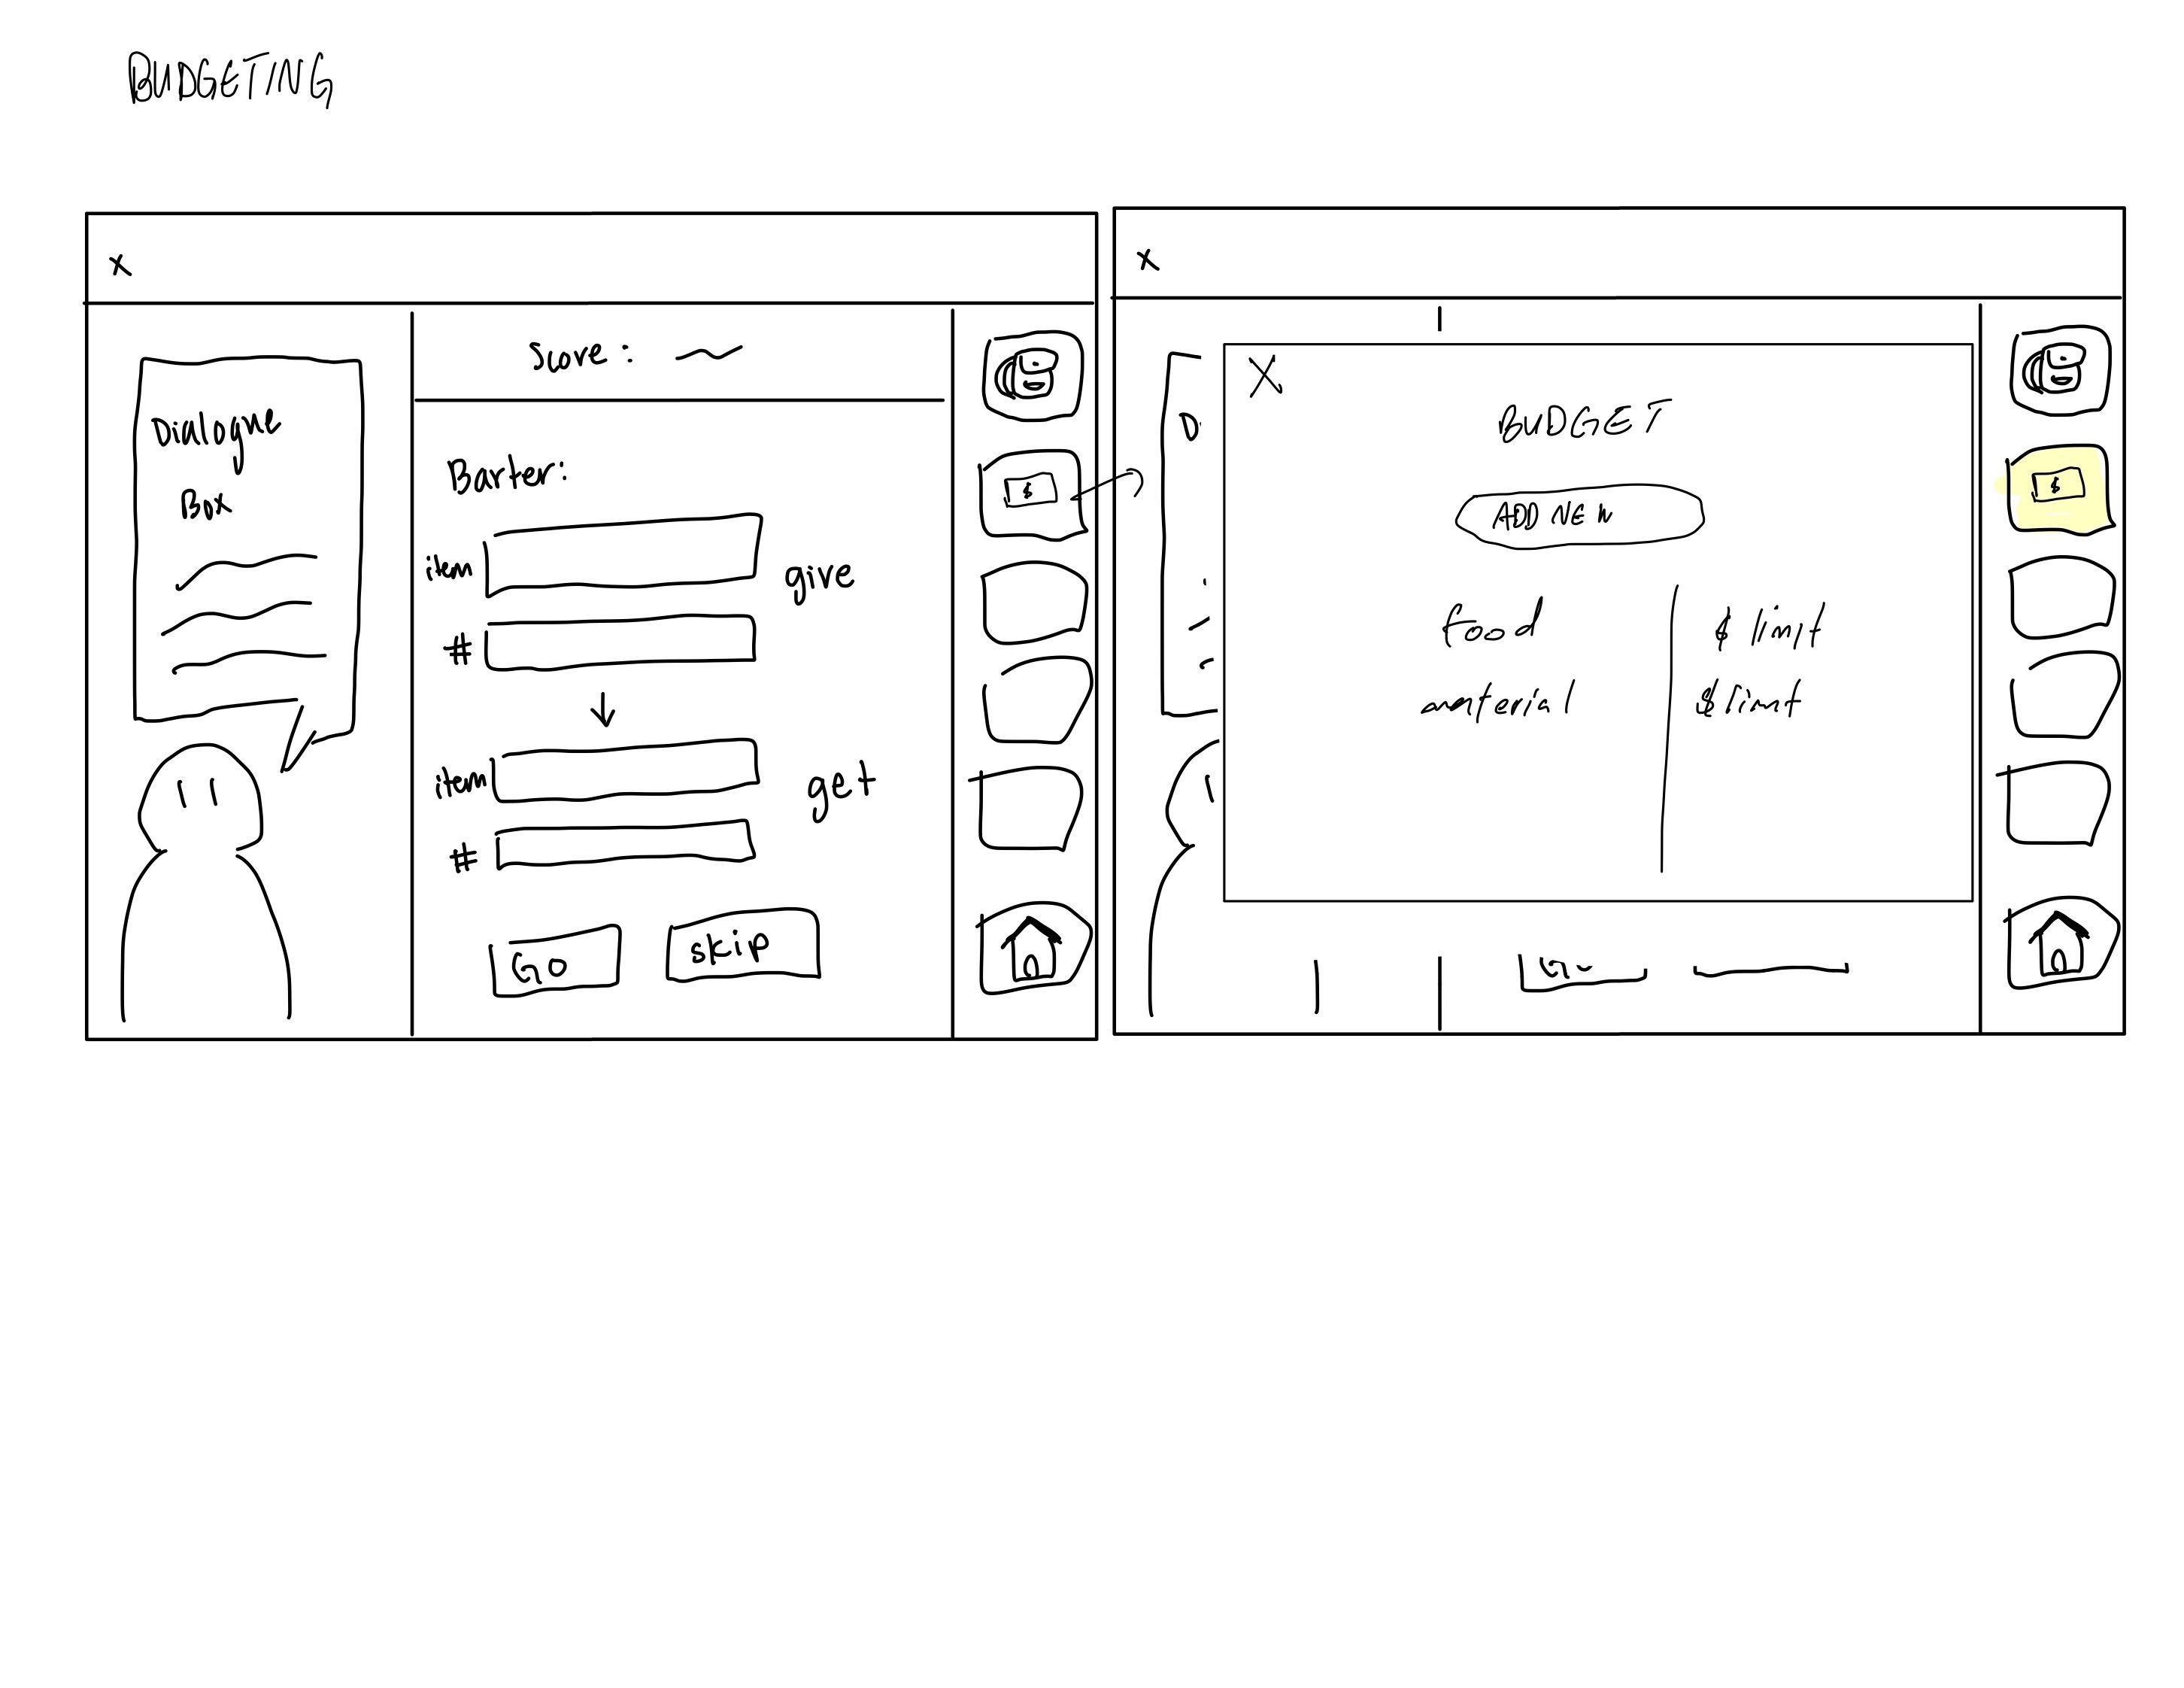 BUDGETING
x
Score:
Dialogue
Box
Barter:
item
give
#
item
get
#
Go
skip
$
x
X
BUDGET
ADD NEW
food
$ limit
material
$ limit
$